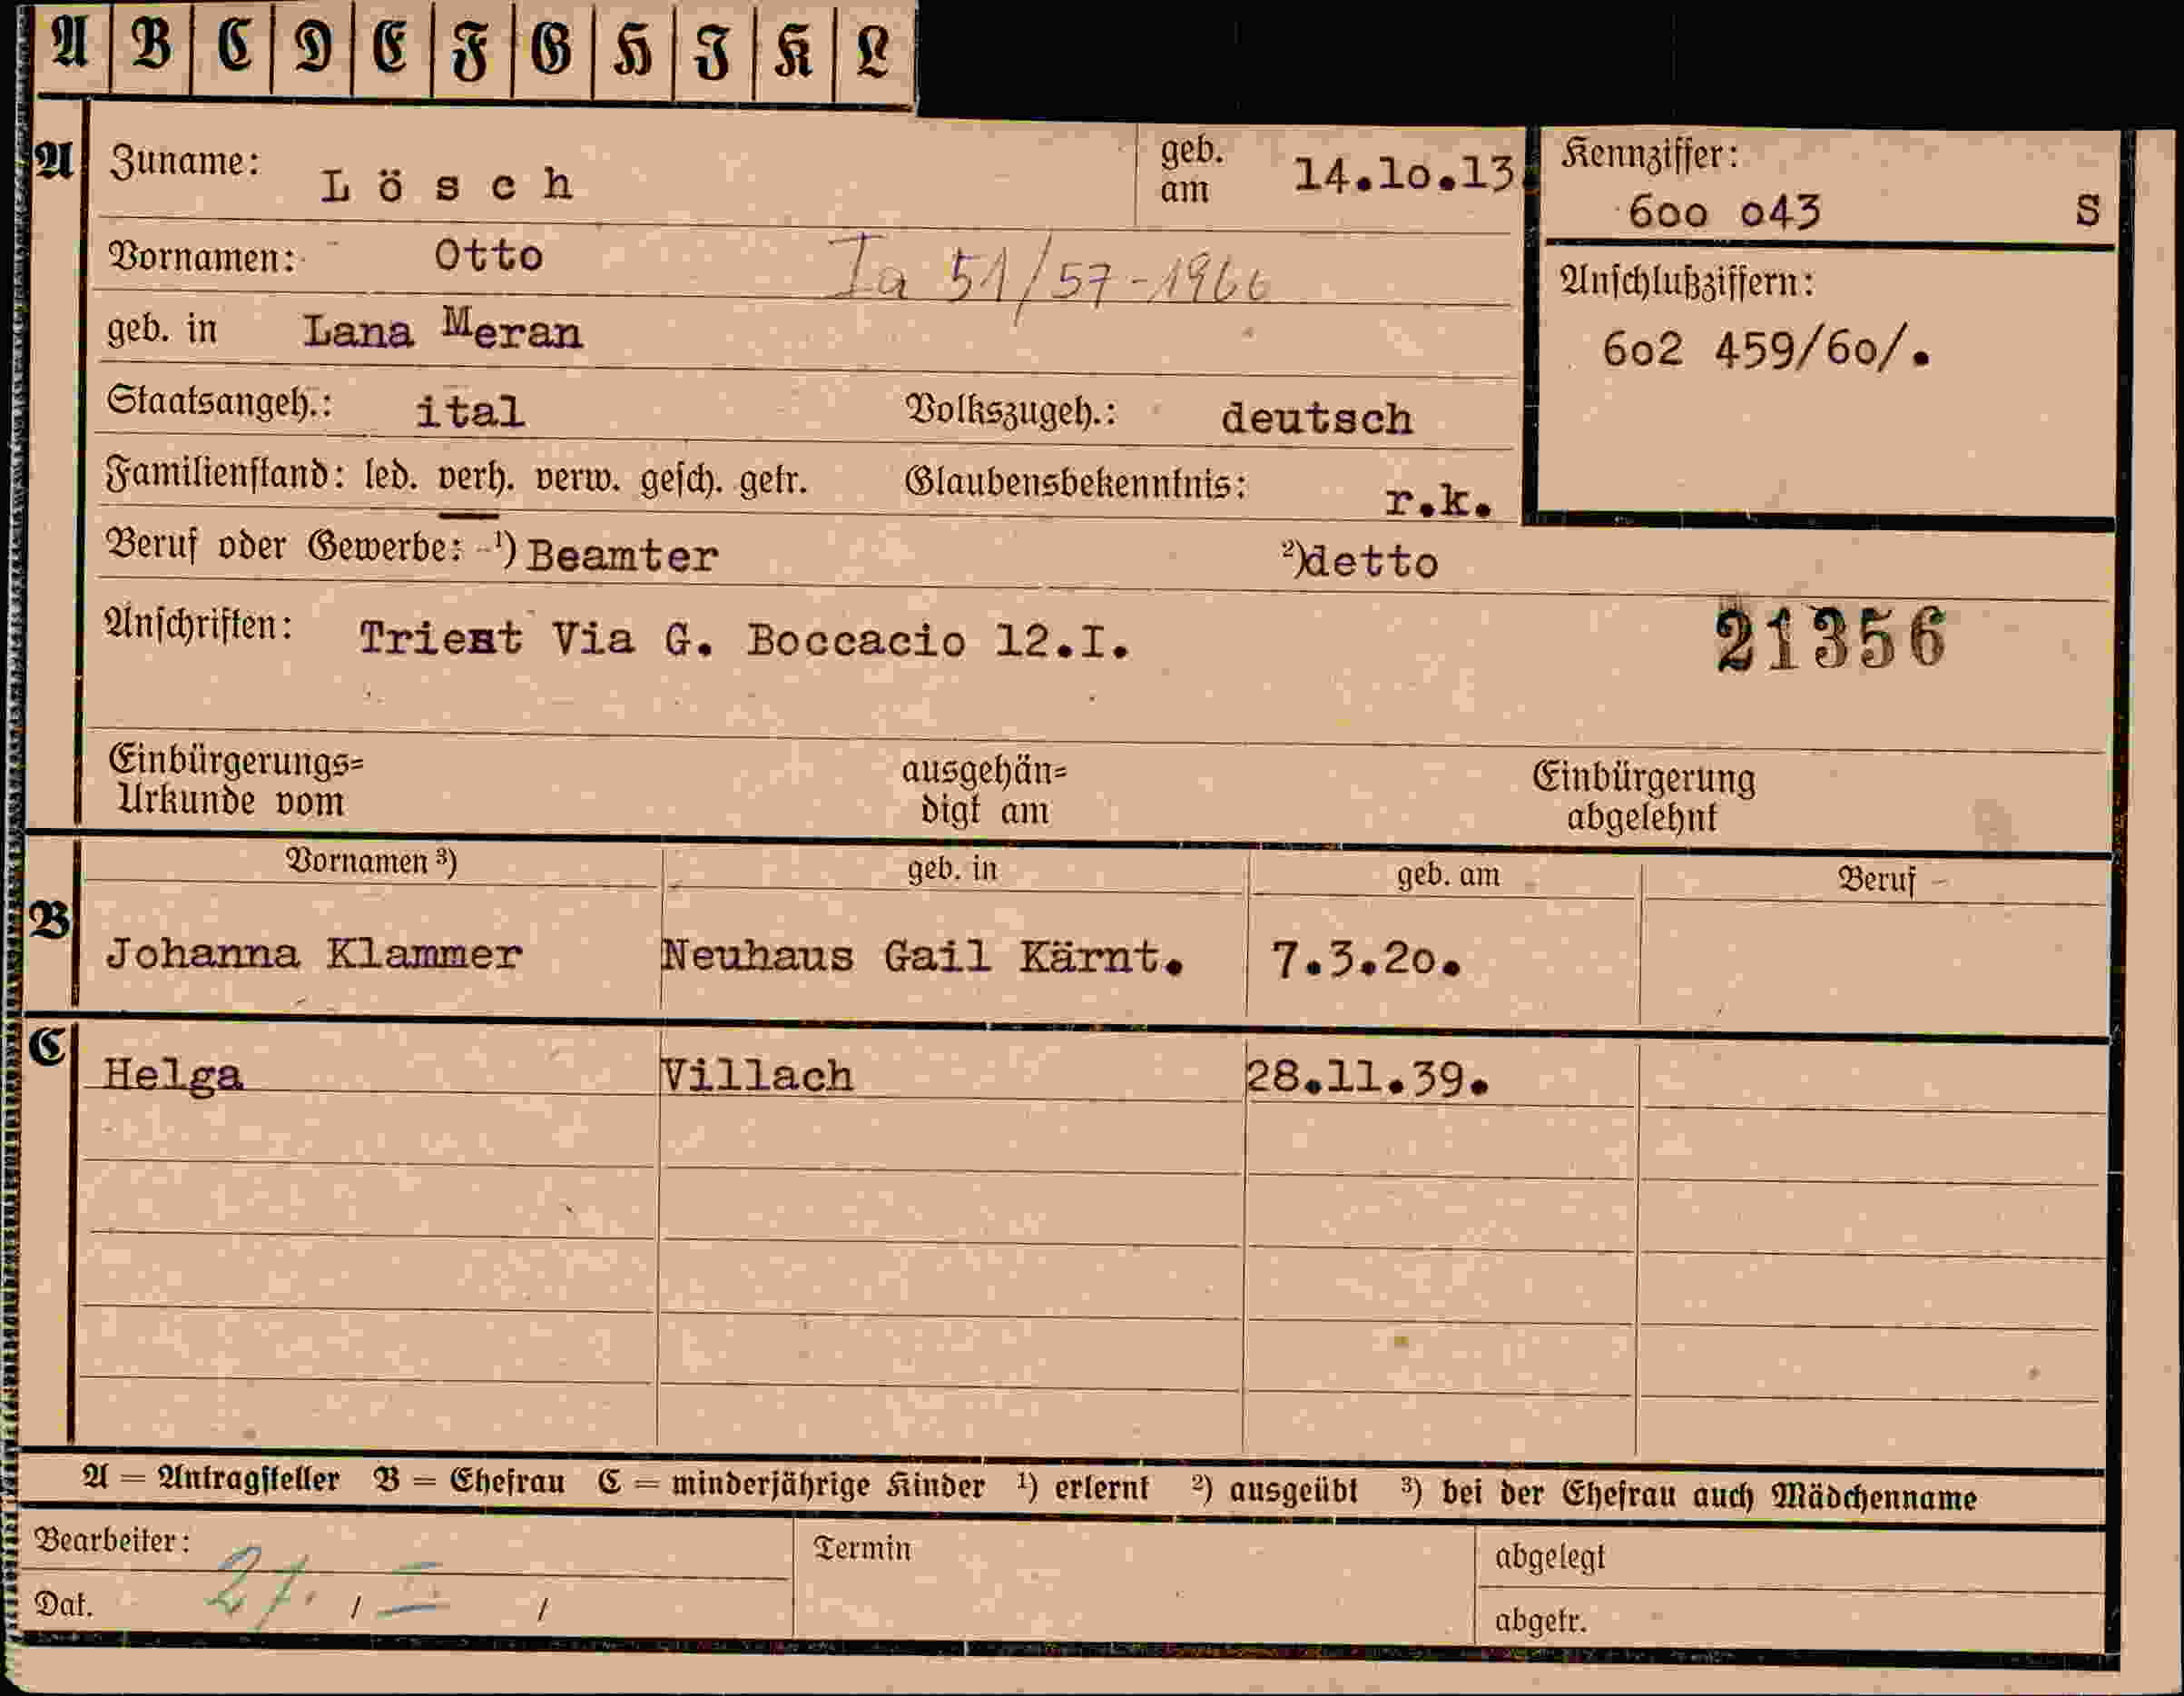 A B C D E F G H J K L
A Zuname: Lösch geb. am 14.10.13. Kennziffer: 600 043 S
Vornamen: Otto Ia 51/57-1966
Anschlußziffern: 602 459/60/.
geb. in Lana Meran
Staatsangeh.: ital Volkszugeh.: deutsch
Familienstand: led. verh. verw. gesch. getr. Glaubensbekenntnis: r.k.
Beruf oder Gewerbe: ¹) Beamter ²) detto
Anschriften: Triest Via G. Boccacio 12.I. 21356
Einbürgerungs= Urkunde vom ausgehän= digt am Einbürgerung abgelehnt
Vornamen ³) geb. in geb. am Beruf
B Johanna Klammer Neuhaus Gail Kärnt. 7.3.20.
C Helga Villach 28.11.39.
A = Antragsteller B = Ehefrau C = minderjährige Kinder ¹) erlernt ²) ausgeübt ³) bei der Ehefrau auch Mädchenname
Bearbeiter: Termin abgelegt
Dat. 27. / I / abgetr.